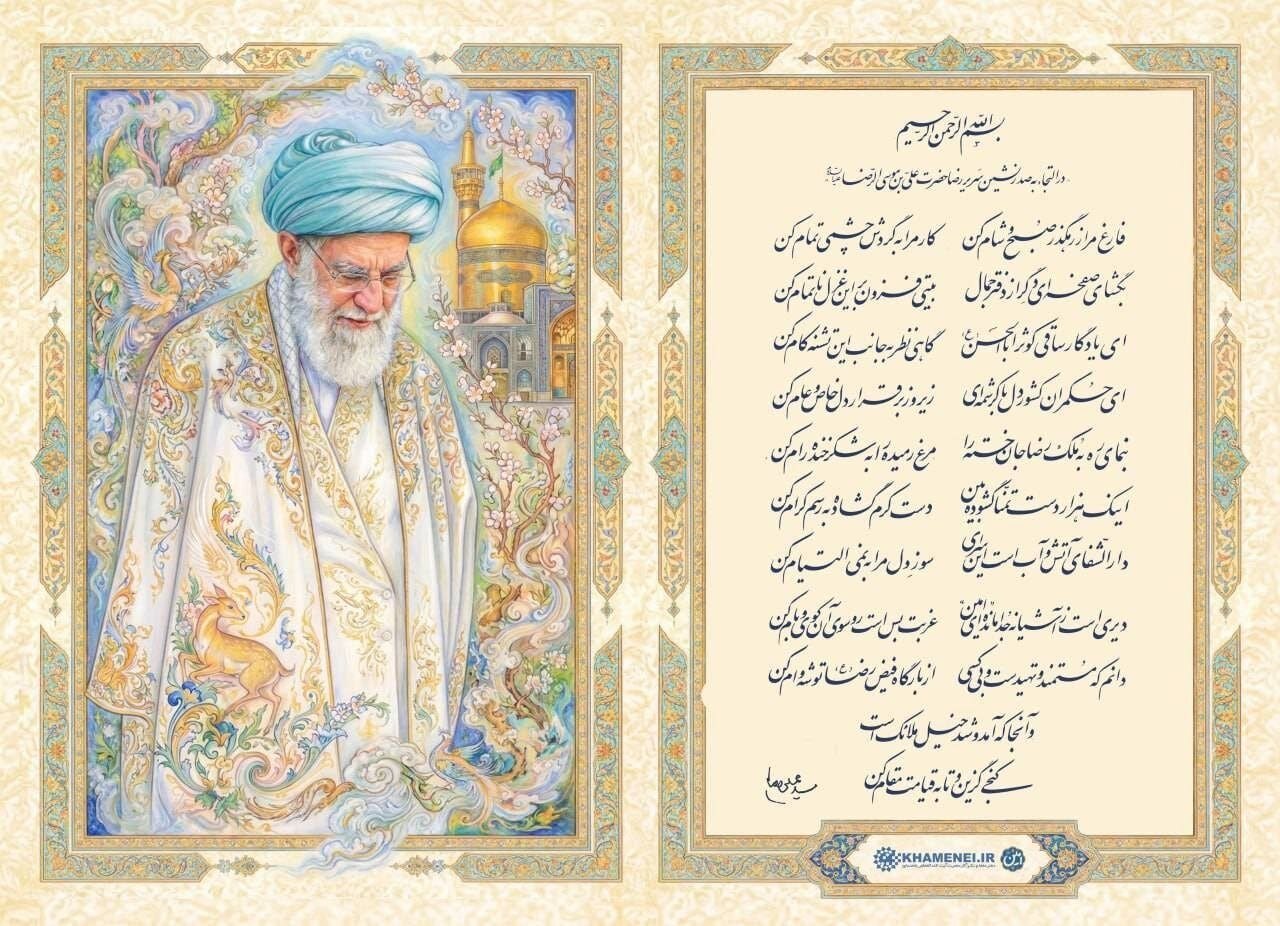 بسم الله الرحمن الرحیم
در التجاء به صدرنشین سریر رضا حضرت علی بن موسی الرضا علیه‌السلام
فارغ مرا ز رهگذر صبح و شام کن کار مرا به گردش چشمی تمام کن
بگشای صفحه‌ای دگر از دفتر جمال بیتی فزون بر این غزل ناتمام کن
ای یادگار ساقی کوثر اباالحسن(ع) گاهی نظر به جانب این تشنه کام کن
ای حکمران کشور دل با کرشمه‌ای زیر و زبر قرار دل خاص و عام کن
بنمای ره به ملک رضا جان خسته را مرغ رمیده را به شکرخنده رام کن
اینک هزار دست تمنا گشوده بین دست کرم گشاده به رسم کرام کن
دارالشفای آتش و آب است این سرای سوز دل مرا به نمی التیام کن
دیری است ز آشیانه جدا مانده‌ای امین غربت بس است رو سوی آن کوی و بام کن
دانم که مستمند و تهیدست و بی‌کسی از بارگاه فیض رضا(ع) توشه وام کن
و آنجا که آمد و شد خیل ملائک است
کنجی گزین و تا به قیامت مقام کن
KHAMENEI.IR